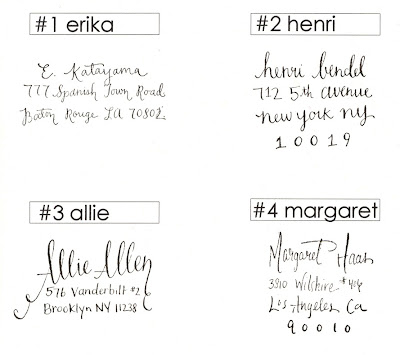 #1 erika
E. Katayama
777 Spanish Town Road
Baton Rouge LA 70802
#2 henri
henri bendel
712 5th avenue
new york ny
10019
#3 allie
Allie Allen
576 Vanderbilt #2
Brooklyn NY 11238
#4 margaret
Margaret Haas
3910 Wilshire #406
Los Angeles Ca
90010